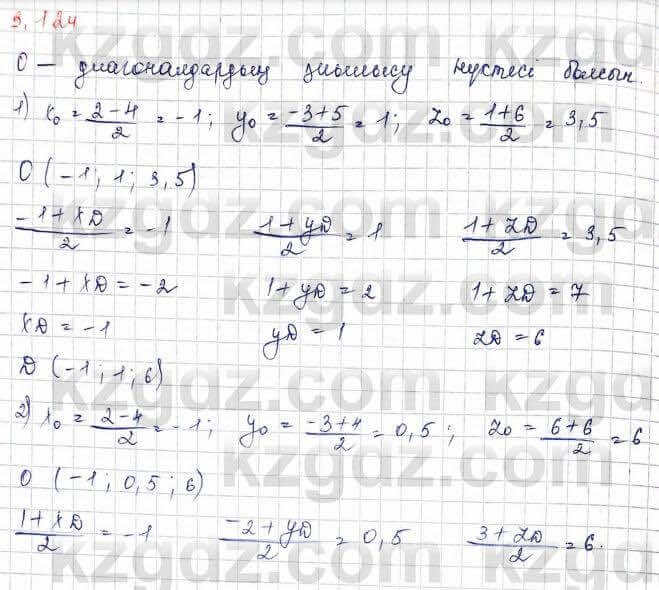 9.124
O — диагоналдардың қиылысу нүктесі болсын.
1) x₀ = (2-4)/2 = -1; y₀ = (-3+5)/2 = 1; z₀ = (1+6)/2 = 3,5
O (-1; 1; 3,5)
(-1+xD)/2 = -1 (1+yD)/2 = 1 (1+zD)/2 = 3,5
-1+xD = -2 1+yD = 2 1+zD = 7
xD = -1 yD = 1 zD = 6
D (-1; 1; 6)
2) x₀ = (2-4)/2 = -1; y₀ = (-3+4)/2 = 0,5; z₀ = (6+6)/2 = 6
O (-1; 0,5; 6)
(1+xD)/2 = -1 (-2+yD)/2 = 0,5 (3+zD)/2 = 6.
kzgdz.com